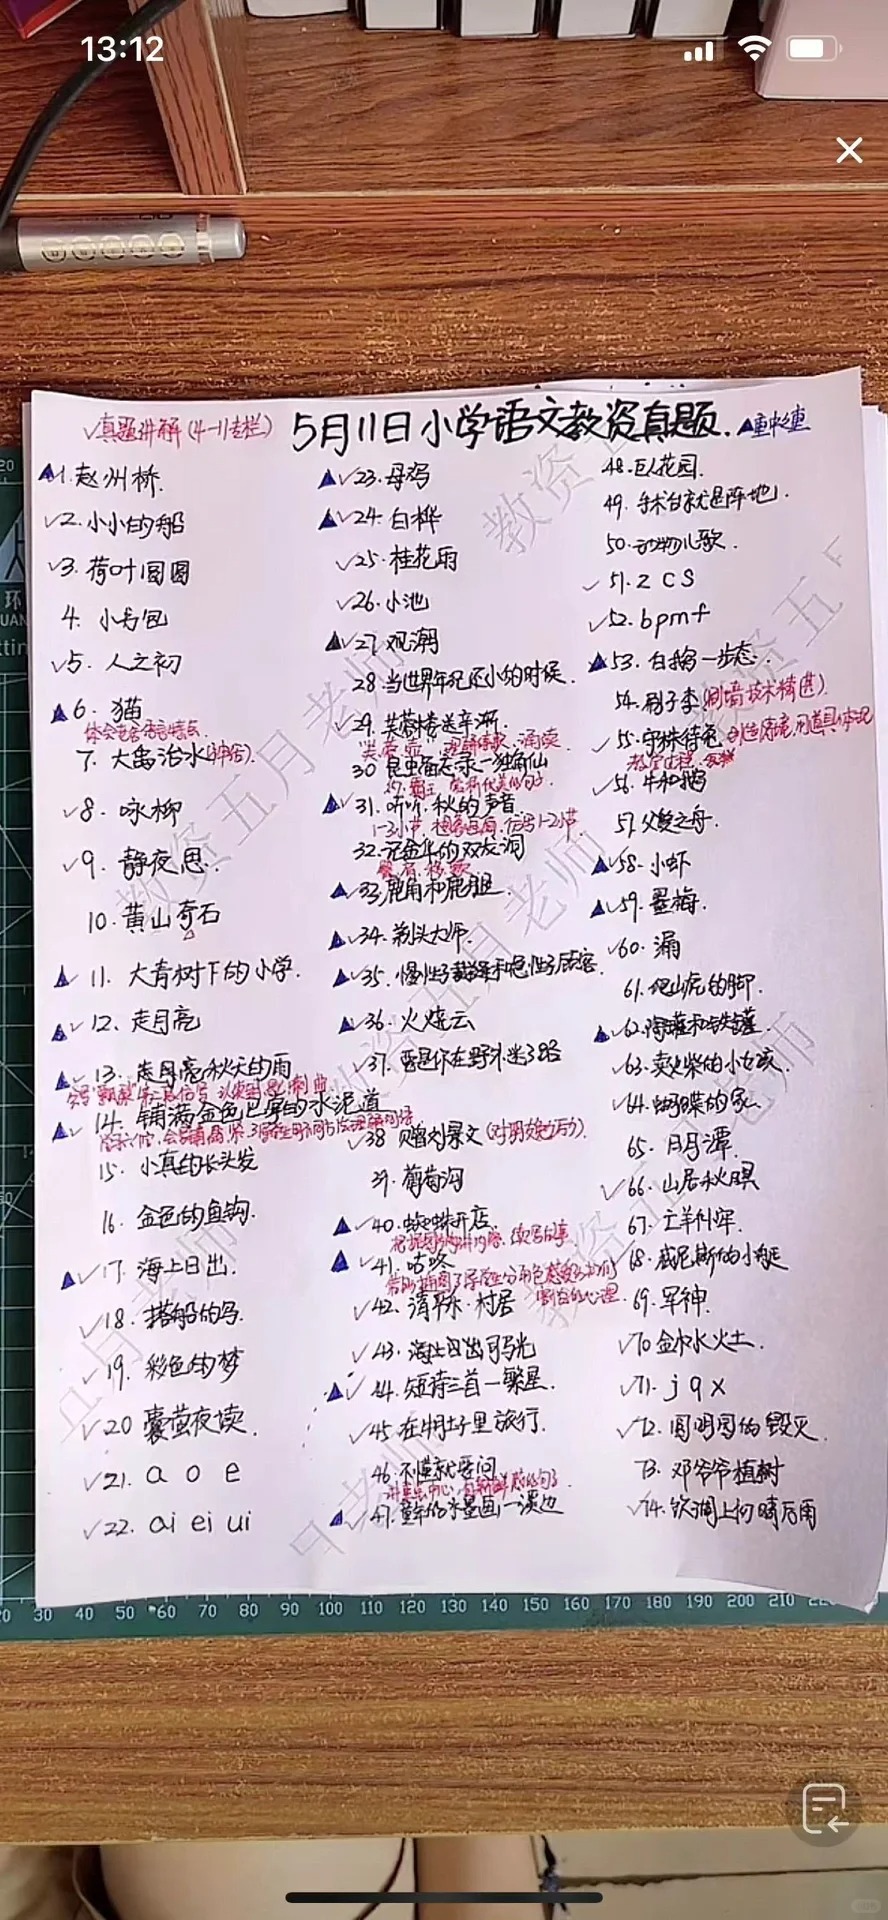 13:12
✓真题讲解(4-11专栏)
5月11日小学语文教资真题.
▲重中之重
▲1.赵州桥.
✓2.小小的船
✓3.荷叶圆圆
4.小书包
✓5.人之初
▲6.猫
7.大禹治水(神话).
✓8.咏柳
✓9.静夜思
10.黄山奇石
▲✓11.大青树下的小学.
▲✓12.走月亮
▲✓13.走月亮秋天的雨
▲✓14.铺满金色巴掌的水泥道
15.小真的长头发
16.金色的鱼钩.
▲✓17.海上日出.
✓18.搭船的鸟.
✓19.彩色的梦
✓20 囊萤夜读.
✓21. a o e
✓22. ai ei ui
▲✓23.母鸡
▲✓24.白桦
✓25.桂花雨
✓26.小池
▲✓27.观潮
28.当世界年纪还小的时候.
✓29.芙蓉楼送辛渐.
30 昆虫备忘录—独角仙
▲✓31.听听,秋的声音
1-3小节,想象画面,仿写1-2节
32.记金华的双龙洞
▲✓33.鹿角和鹿腿.
▲✓34.剃头大师.
▲✓35.慢性子裁缝和急性子顾客.
▲✓36.火烧云
✓37.要是你在野外迷了路
✓38 赠刘景文(对朋友勉励).
39.葡萄沟
▲✓40.蜘蛛开店.
▲✓41.咕咚
✓42.清平乐·村居
✓43.海上日出
▲✓44.短诗三首—繁星.
✓45.在牛肚子里旅行.
46.不懂就要问
▲✓47.童年的水墨画—溪边
48.巨人花园.
49.手术台就是阵地.
50.动物儿歌.
✓51. z c s
✓52. b p m f
▲✓53.白鹅—步态.
54.刷子李(刷墙技术精进).
✓55.守株待兔
✓56.牛和鹅
57.父爱之舟.
▲✓58.小虾
▲✓59.墨梅.
✓60.漏
61.爬山虎的脚.
▲✓62.陶罐和铁罐.
✓63.卖火柴的小女孩.
✓64.蝴蝶的家.
65.日月潭.
✓66.山居秋暝
67.亡羊补牢.
✓68.威尼斯的小艇
69.军神.
✓70 金木水火土.
✓71. j q x
✓72.圆明园的毁灭.
73.邓爷爷植树
✓74.饮湖上初晴后雨
教资五月老师
30 40 50 60 70 80 90 100 110 120 130 140 150 160 170 180 190 200 210